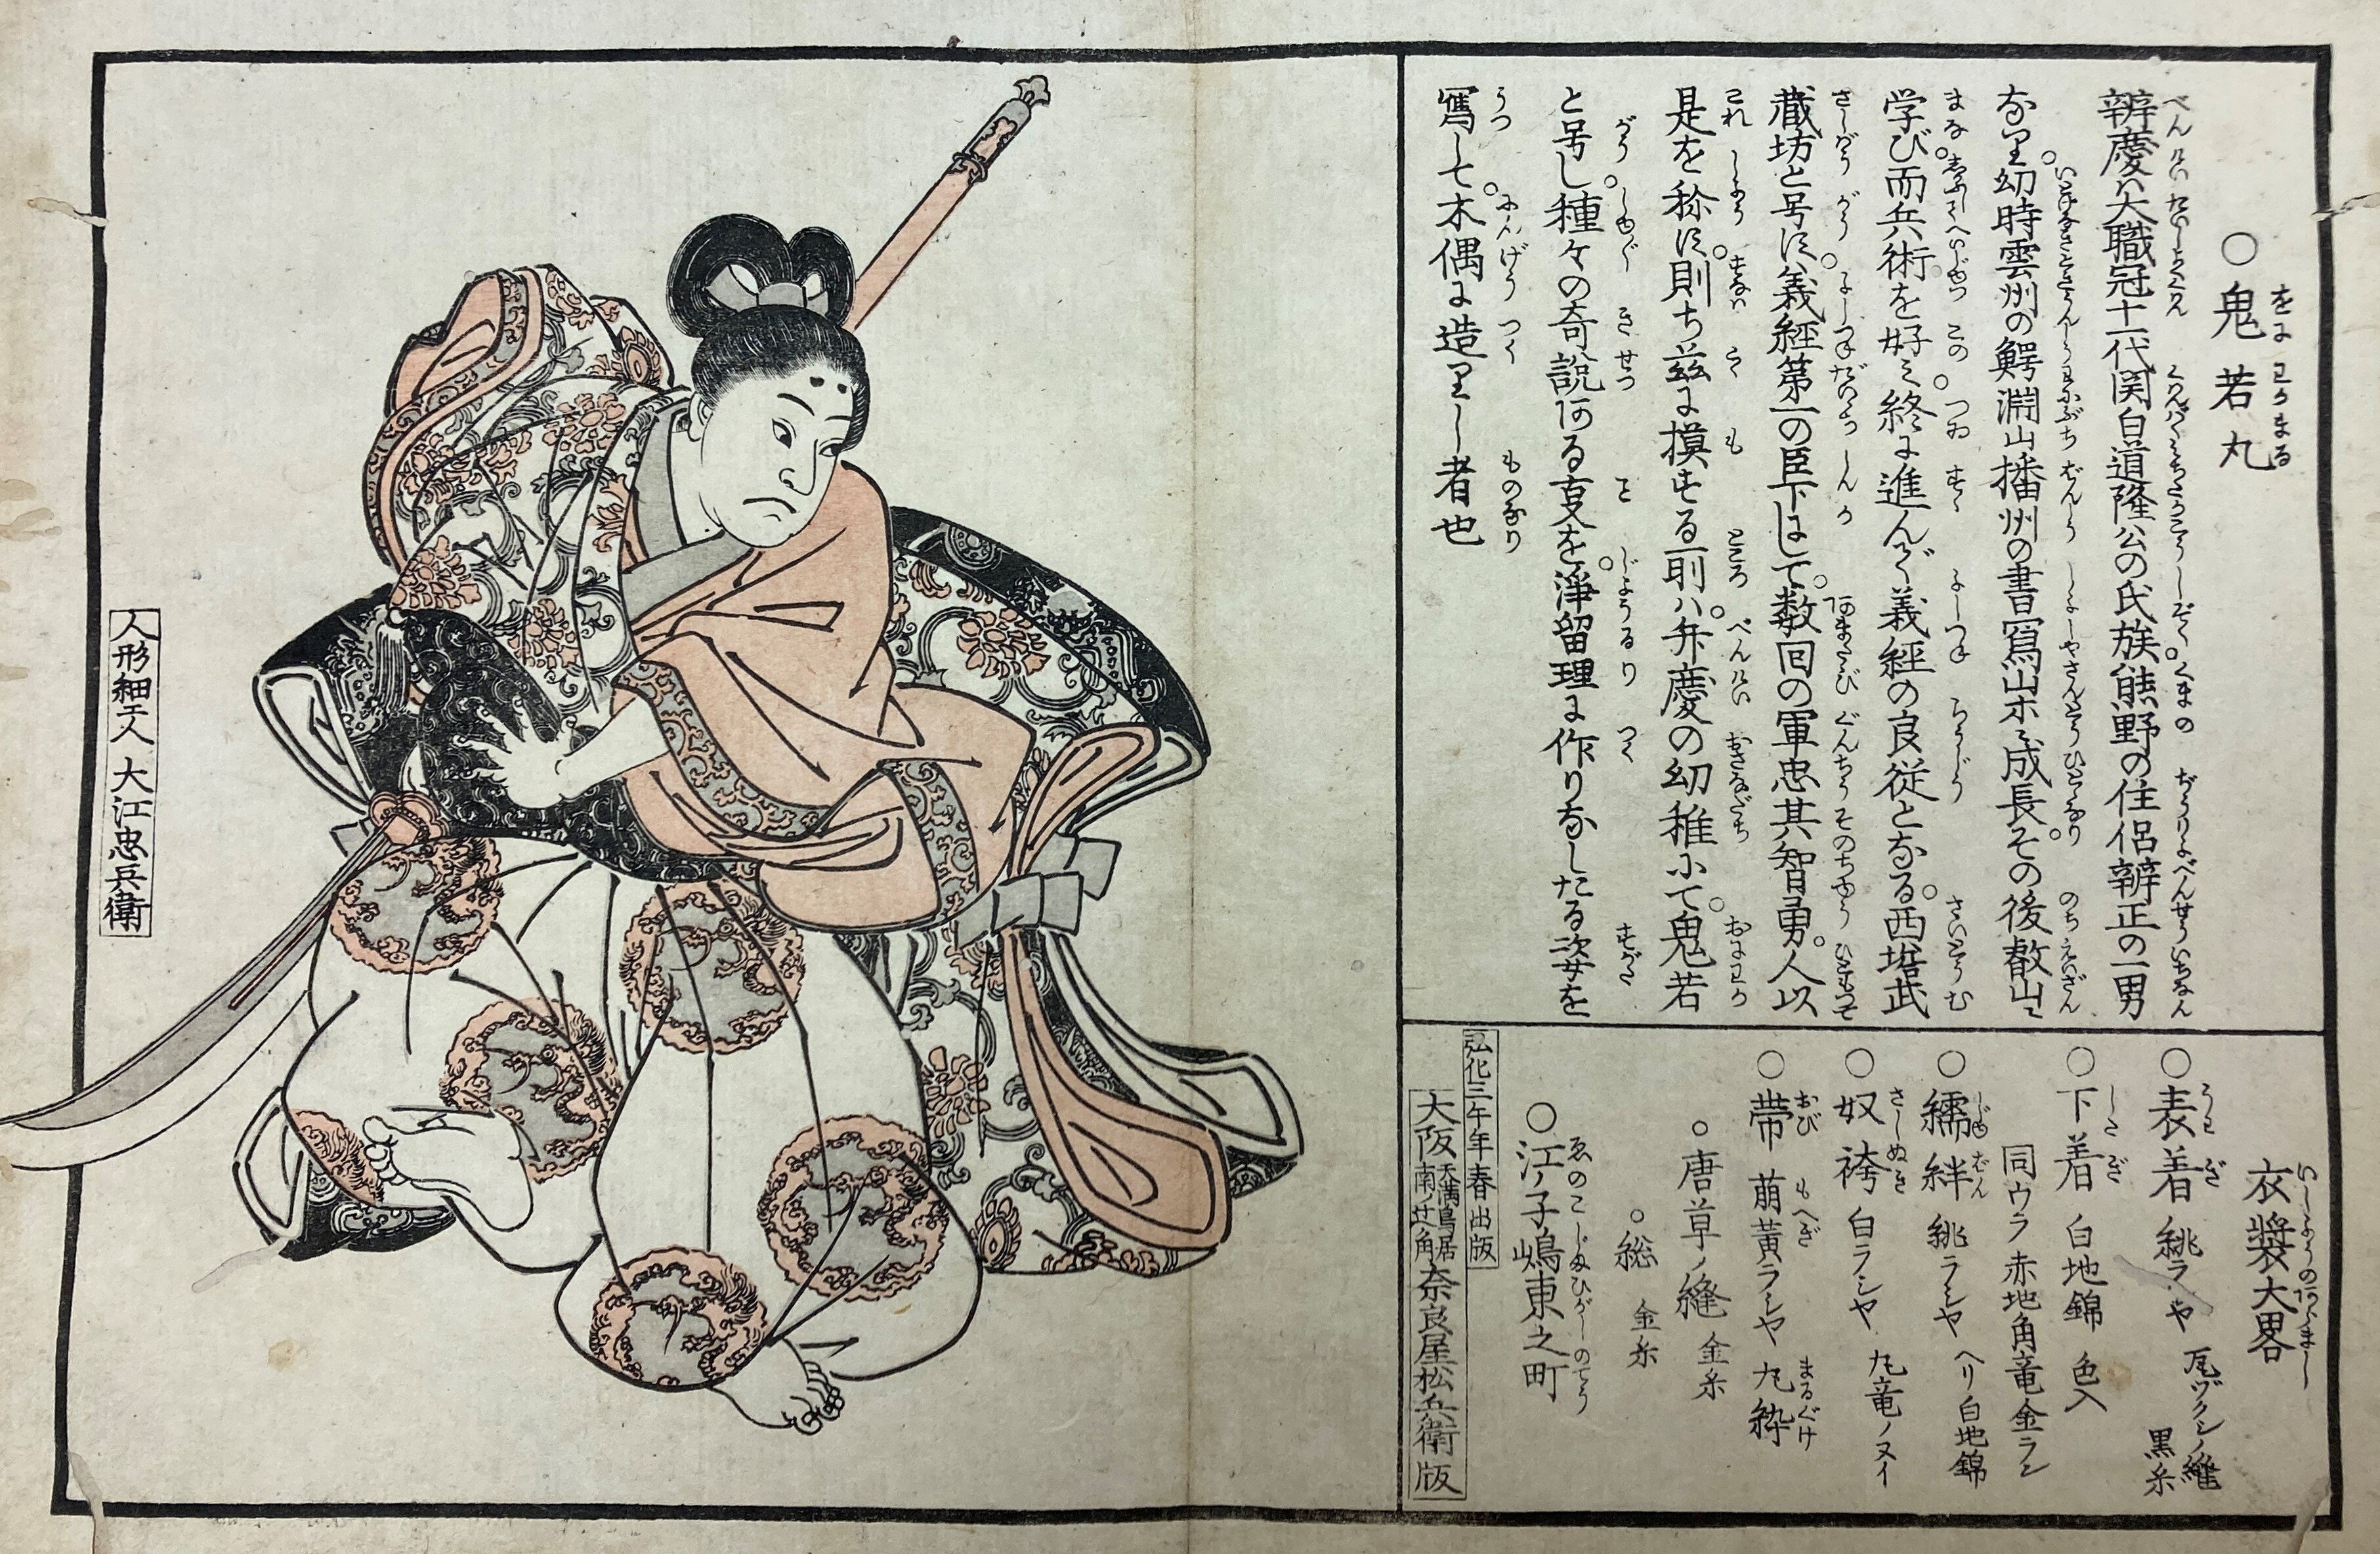 ○鬼若丸
をにわかまる
辨慶ハ大職冠十一代関白道隆公の氏族熊野の住侶辨正の一男
なり○幼時雲州の鰐淵山播州の書寫山ホに成長○その後叡山に
学び○而兵術を好ミ○終に進んで義經の良従となる○西塔武
蔵坊と号す○義經第一の臣下にして○数回の軍忠其智勇○人以
是を称す○則ち茲に摸する所ハ○弁慶の幼稚にて○鬼若
と号し○種々の奇説ある支を○淨留理に作りなしたる姿を
寫して○木偶に造りし者也
衣装大畧
○表着 緋ラシヤ 尾ヅクシノ縫 黒糸
○下着 白地錦 色入
同ウラ 赤地角竜金ラン
○繻絆 緋ラシヤ ヘリ白地錦
○奴袴 白ラシヤ 丸竜ノヌイ
○帯 萠黄ラシヤ 丸絎
○唐草ノ縫 金糸
○総 金糸
○江ノ子嶋東之町
弘化三午年春出版
大阪天満鳥居南ノ辻角奈良屋松兵衛版
人形細工人 大江忠兵衛